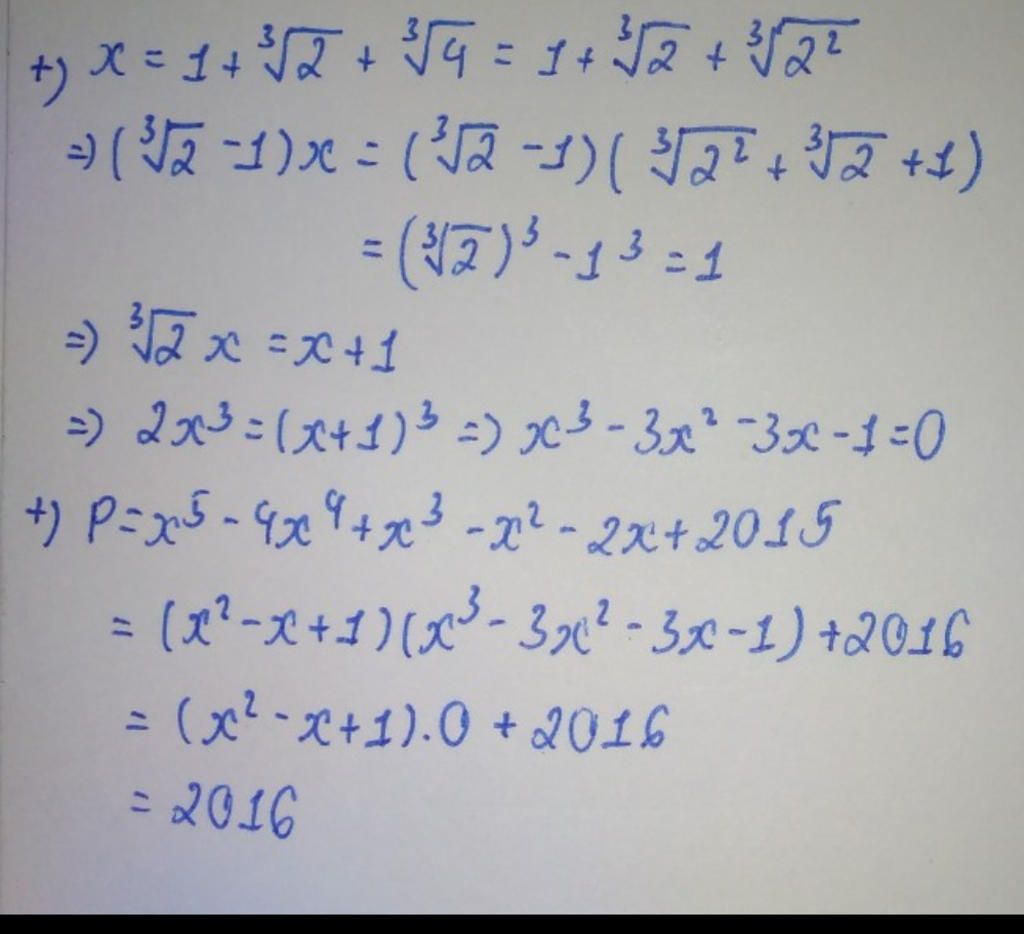 +) x = 1 + ∛2 + ∛4 = 1 + ∛2 + ∛2²
=> (∛2 - 1)x = (∛2 - 1)(∛2² + ∛2 + 1)
= (∛2)³ - 1³ = 1
=> ∛2 x = x + 1
=> 2x³ = (x+1)³ => x³ - 3x² - 3x - 1 = 0
+) P = x⁵ - 4x⁴ + x³ - x² - 2x + 2015
= (x² - x + 1)(x³ - 3x² - 3x - 1) + 2016
= (x² - x + 1).0 + 2016
= 2016